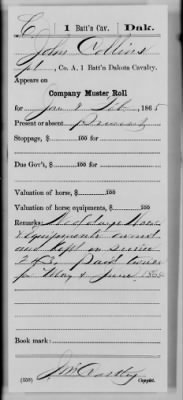 C | 1 Batt's Cav. | Dak.
John Collins
Pvt, Co. A, 1 Batt'n Dakota Cavalry.
Appears on
Company Muster Roll
for Jan & Feb, 1865
Present or absent Present
Stoppage, $ 100 for
Due Gov't, $ 100 for
Valuation of horse, $ 100
Valuation of horse equipments, $ 100
Remarks: No of days Horse
& Equipments owned
and kept in service
Paid
for May & June 186
Book mark:
(358) Copyist.